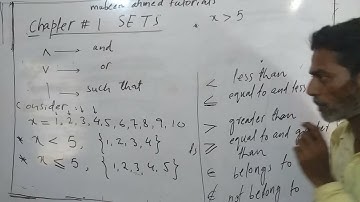 mubeen ahmed tutorials
Chapter # 1 SETS
* x > 5
∧ → and
∨ → or
| → such that
Consider
x = 1, 2, 3, 4, 5, 6, 7, 8, 9, 10
* x < 5, {1, 2, 3, 4}
* x ⩽ 5, {1, 2, 3, 4, 5}
< less than
≤ equal to and less
> greater than
≥ equal to and greater
than
∈ belongs to
∉ not belong to